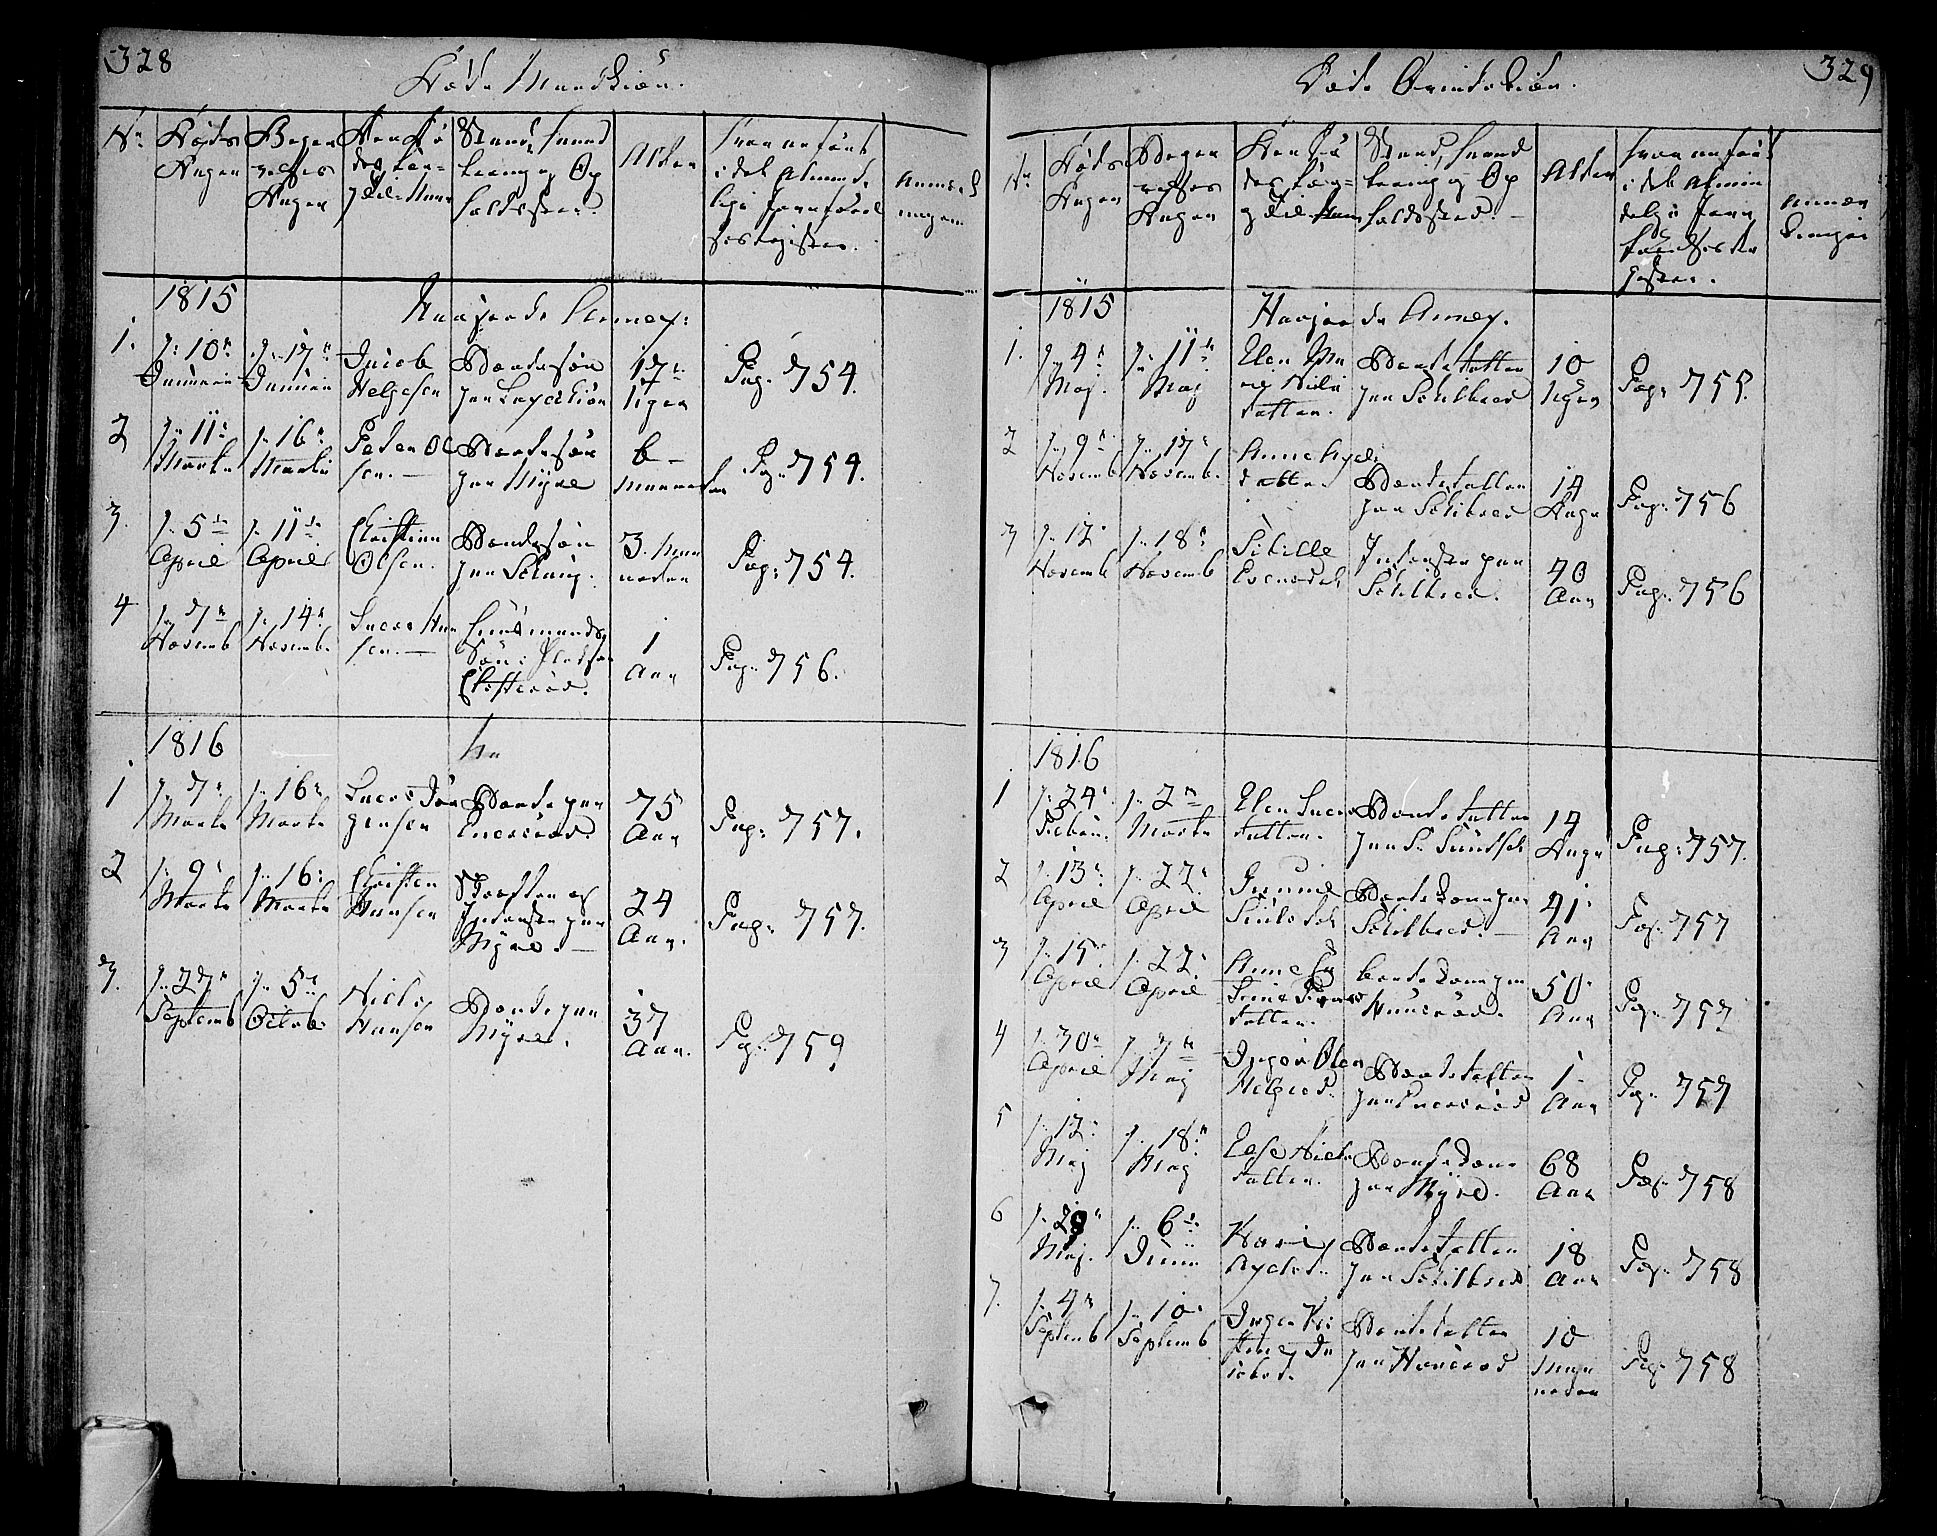 328
Døde Mandkiøn.
No
Døds
Dagen
Begra
velses
Dagen
Den Dø
des For-
og Til-Navn
Stand, Haand
tering og Op
holdssted.
Alder
Hvor anført
i det Almind.
lige Jevnførel
ses Register.
Anmærk
ninger
1815
Haugende Annex:
1.
d: 10de
Januari
d: 17de
Januari
Jacob
Helgesen
Bondesøn
paa
17
Uger
Pag: 754.
2
d: 11te
Martii
d: 16de
Martii
Peder Ol
sen.
Bondesøn
paa Myre
6
Maaneder
Pag: 754.
3.
d: 5te
April
d: 11te
April
Christian
Olsen.
Bondesøn
paa
3. Maa
neder
Pag: 754.
4
d: 7de
Novemb
d: 14de
Novemb.
Lars Han
sen.
Huusmands
Søn
1
Aar
Pag: 756.
1816
1
d: 7de
Martii
d: 16de
Martii
Lars Jør
gensen
Bonde paa
75
Aar
Pag: 757.
2
d: 9de
Martii
d: 16de
Martii
Christen
Hansen
Inderster paa
Myre.
24
Aar.
Pag: 757.
3.
d: 27de
Septemb
d: 5te
Octob.
Niels
Hansen
Bonde paa
Myre.
37
Aar.
Pag: 759
329
Døde Qvindekiøn.
No
Døds
Dagen
Begra
velses
Dagen
Den Dø
des For-
og Til-Navn
Stand, Haand
tering og Op
holdssted.
Alder
Hvor anført
i det Almin
delige Jevn
førelses Re
gister.
Anmær
kninger
1815
Haugende Annex.
1.
d: 4de
Maj.
d: 11te
Maj
Elen Ma
rie Niels
datter.
Bondedatter
paa Schilbred
10
Uger
Pag: 755.
2
d: 9de
Novemb
d: 17de
Novemb.
Anne
datter
Bondedatter
paa Schibred
14
Dage
Pag: 756
3
d: 12te
Novemb
d: 18de
Novemb
Sibille
Evensdat
Inderster paa
Schilbred.
40
Aar
Pag: 756
1816
1
d: 24de
Febru.
d: 2den
Martii
Elen Lars
datter.
Bondedatter
paa
14
Dage
Pag: 757.
2
d: 13de
April
d: 22de
April
Gunnil
Bondekone paa
Schilbred.
41
Aar
Pag: 757
3
d: 15de
April
d: 22de
April
Anne Ca
trine
datter.
Bondekone paa
50
Aar
Pag: 757
4
d: 30te
April
d: 7de
Maj
Inger Olea
Helgesd.
Bondedatter
paa
1
Aar
Pag: 757
5
d: 12te
Maj
d: 18de
Maj
Else Niels
datter.
Bondekone
paa Myre.
68
Aar
Pag: 758
6
d: 29de
Maj.
d: 6te
Junii
Karen
Bondedatter
paa Schilbred
18
Aar
Pag: 758
7.
d: 4de
Septemb
d: 10de
Septemb
Inger Kri
stine Ja
cobsd.
Bondedatter
paa
10
Maa
neder
Pag: 758